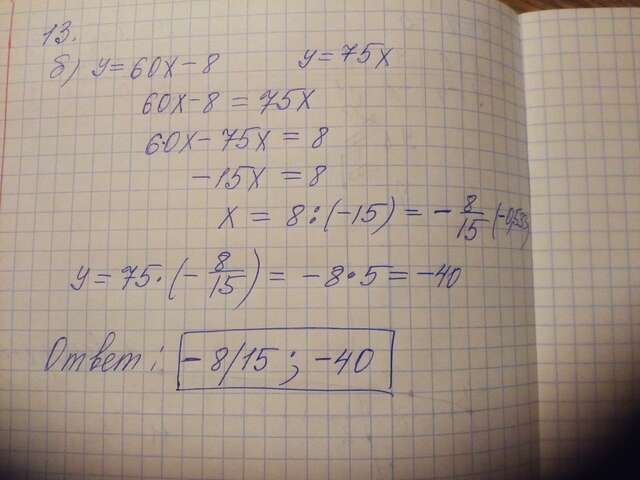 13.
б) y=60x-8 y=75x
60x-8=75x
60x-75x=8
-15x=8
x=8:(-15)=-8/15 (-0,533)
y=75·(-8/15)=-8·5=-40
Ответ: -8/15; -40